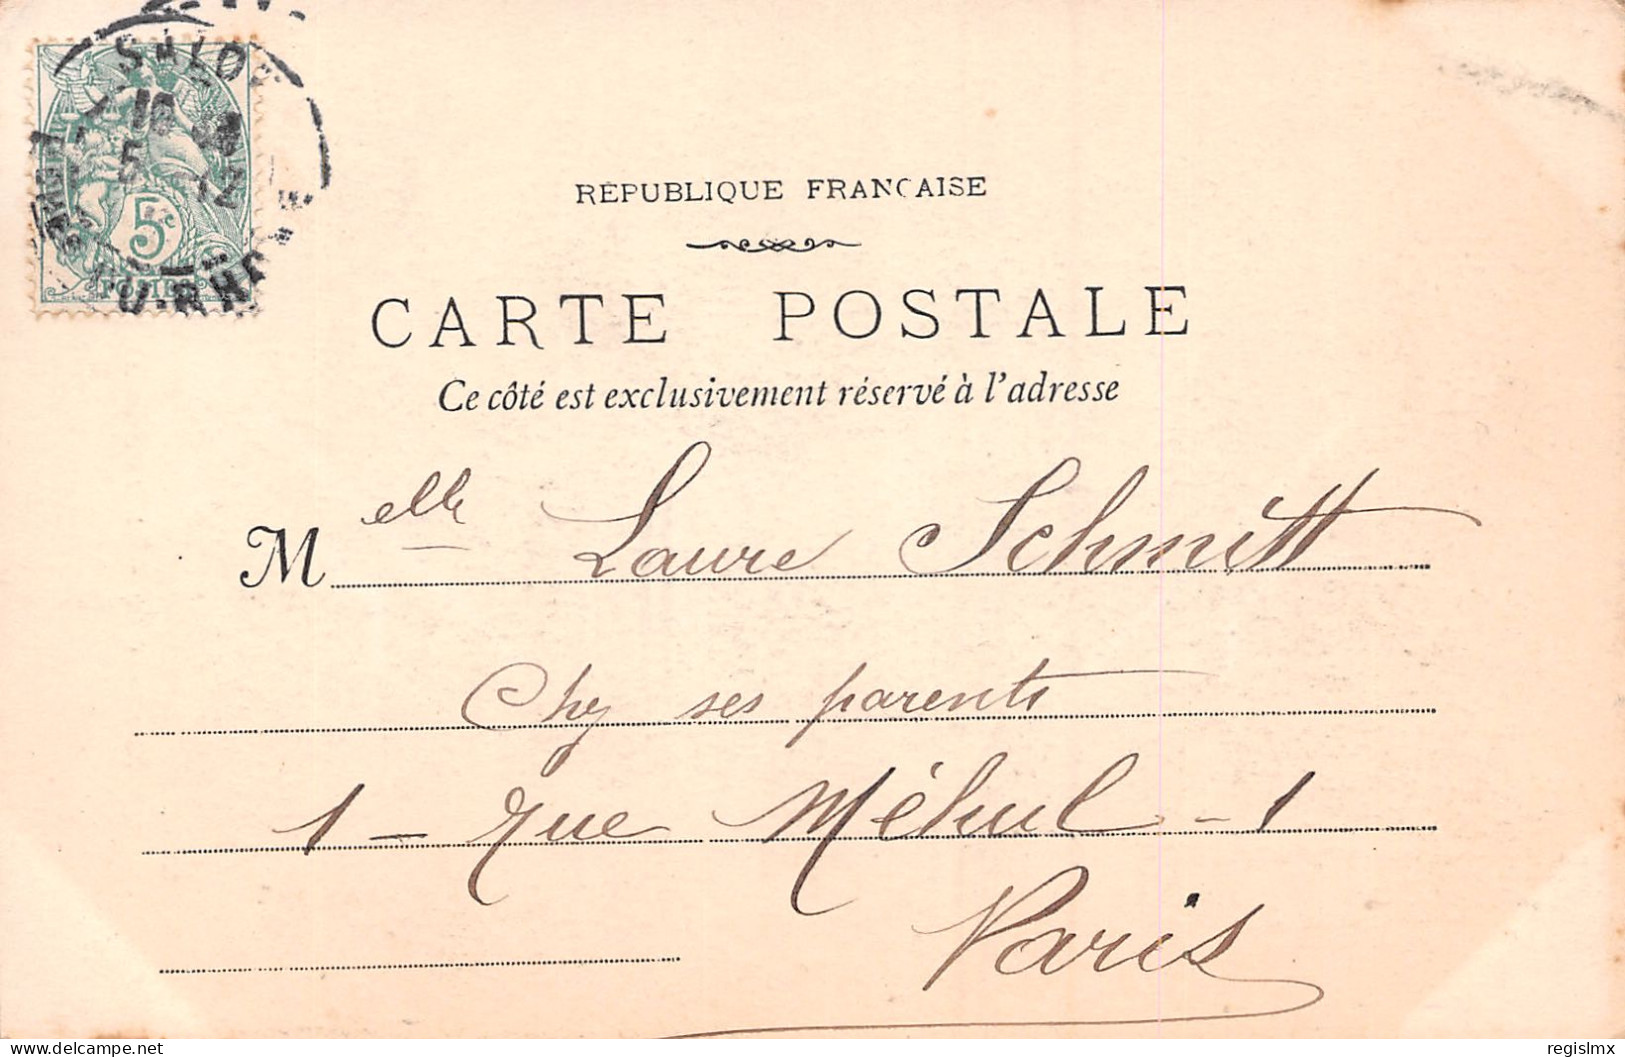 SALON
10
5
12
5c
POSTES
RÉPUBLIQUE FRANCAISE
CARTE POSTALE
Ce côté est exclusivement réservé à l'adresse
Melle Laure Schmitt
Chez ses parents
1 - rue Méhul - 1
Paris
delcampe.net
regislmx